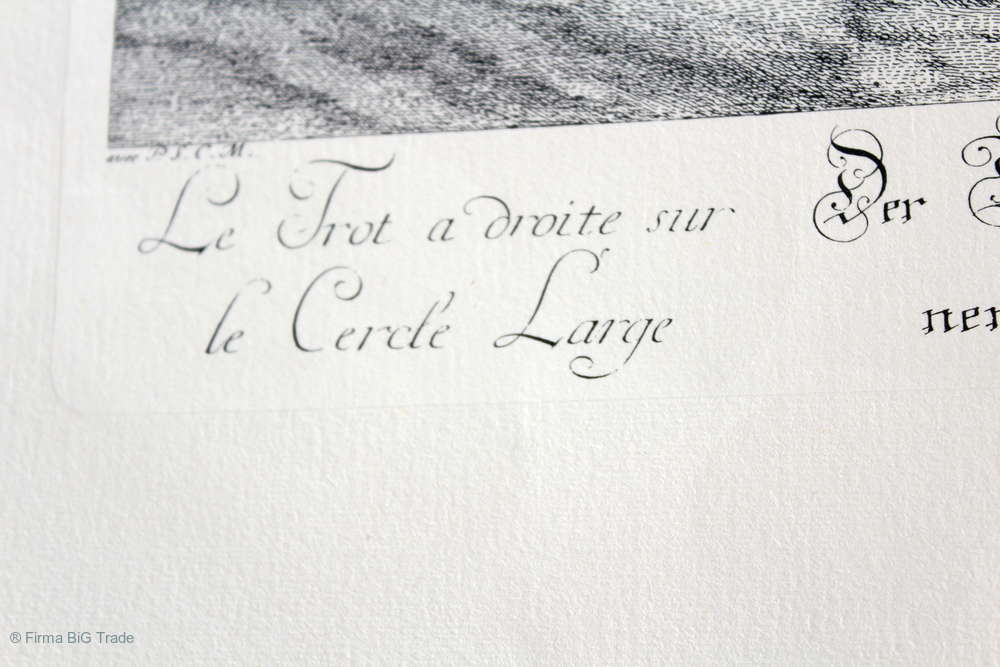 avec P. S. C. M.
Le Trot a droite sur
le Cercle Large
Der
® Firma BiG Trade